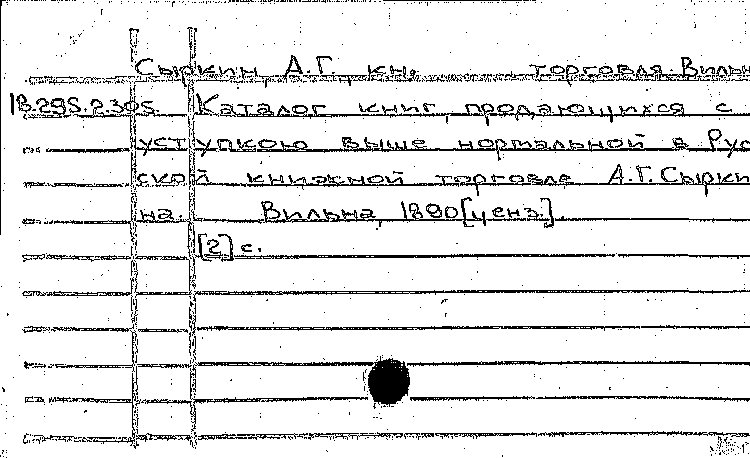 Сыркин, А.Г., кн. торговля. Вильн
18.295.2.305. Каталог книг, продающихся с
уступкою выше нормальной в Рус
ской книжной торговле А.Г. Сырки
на. Вильна, 1890 [ценз.].
[2] с.